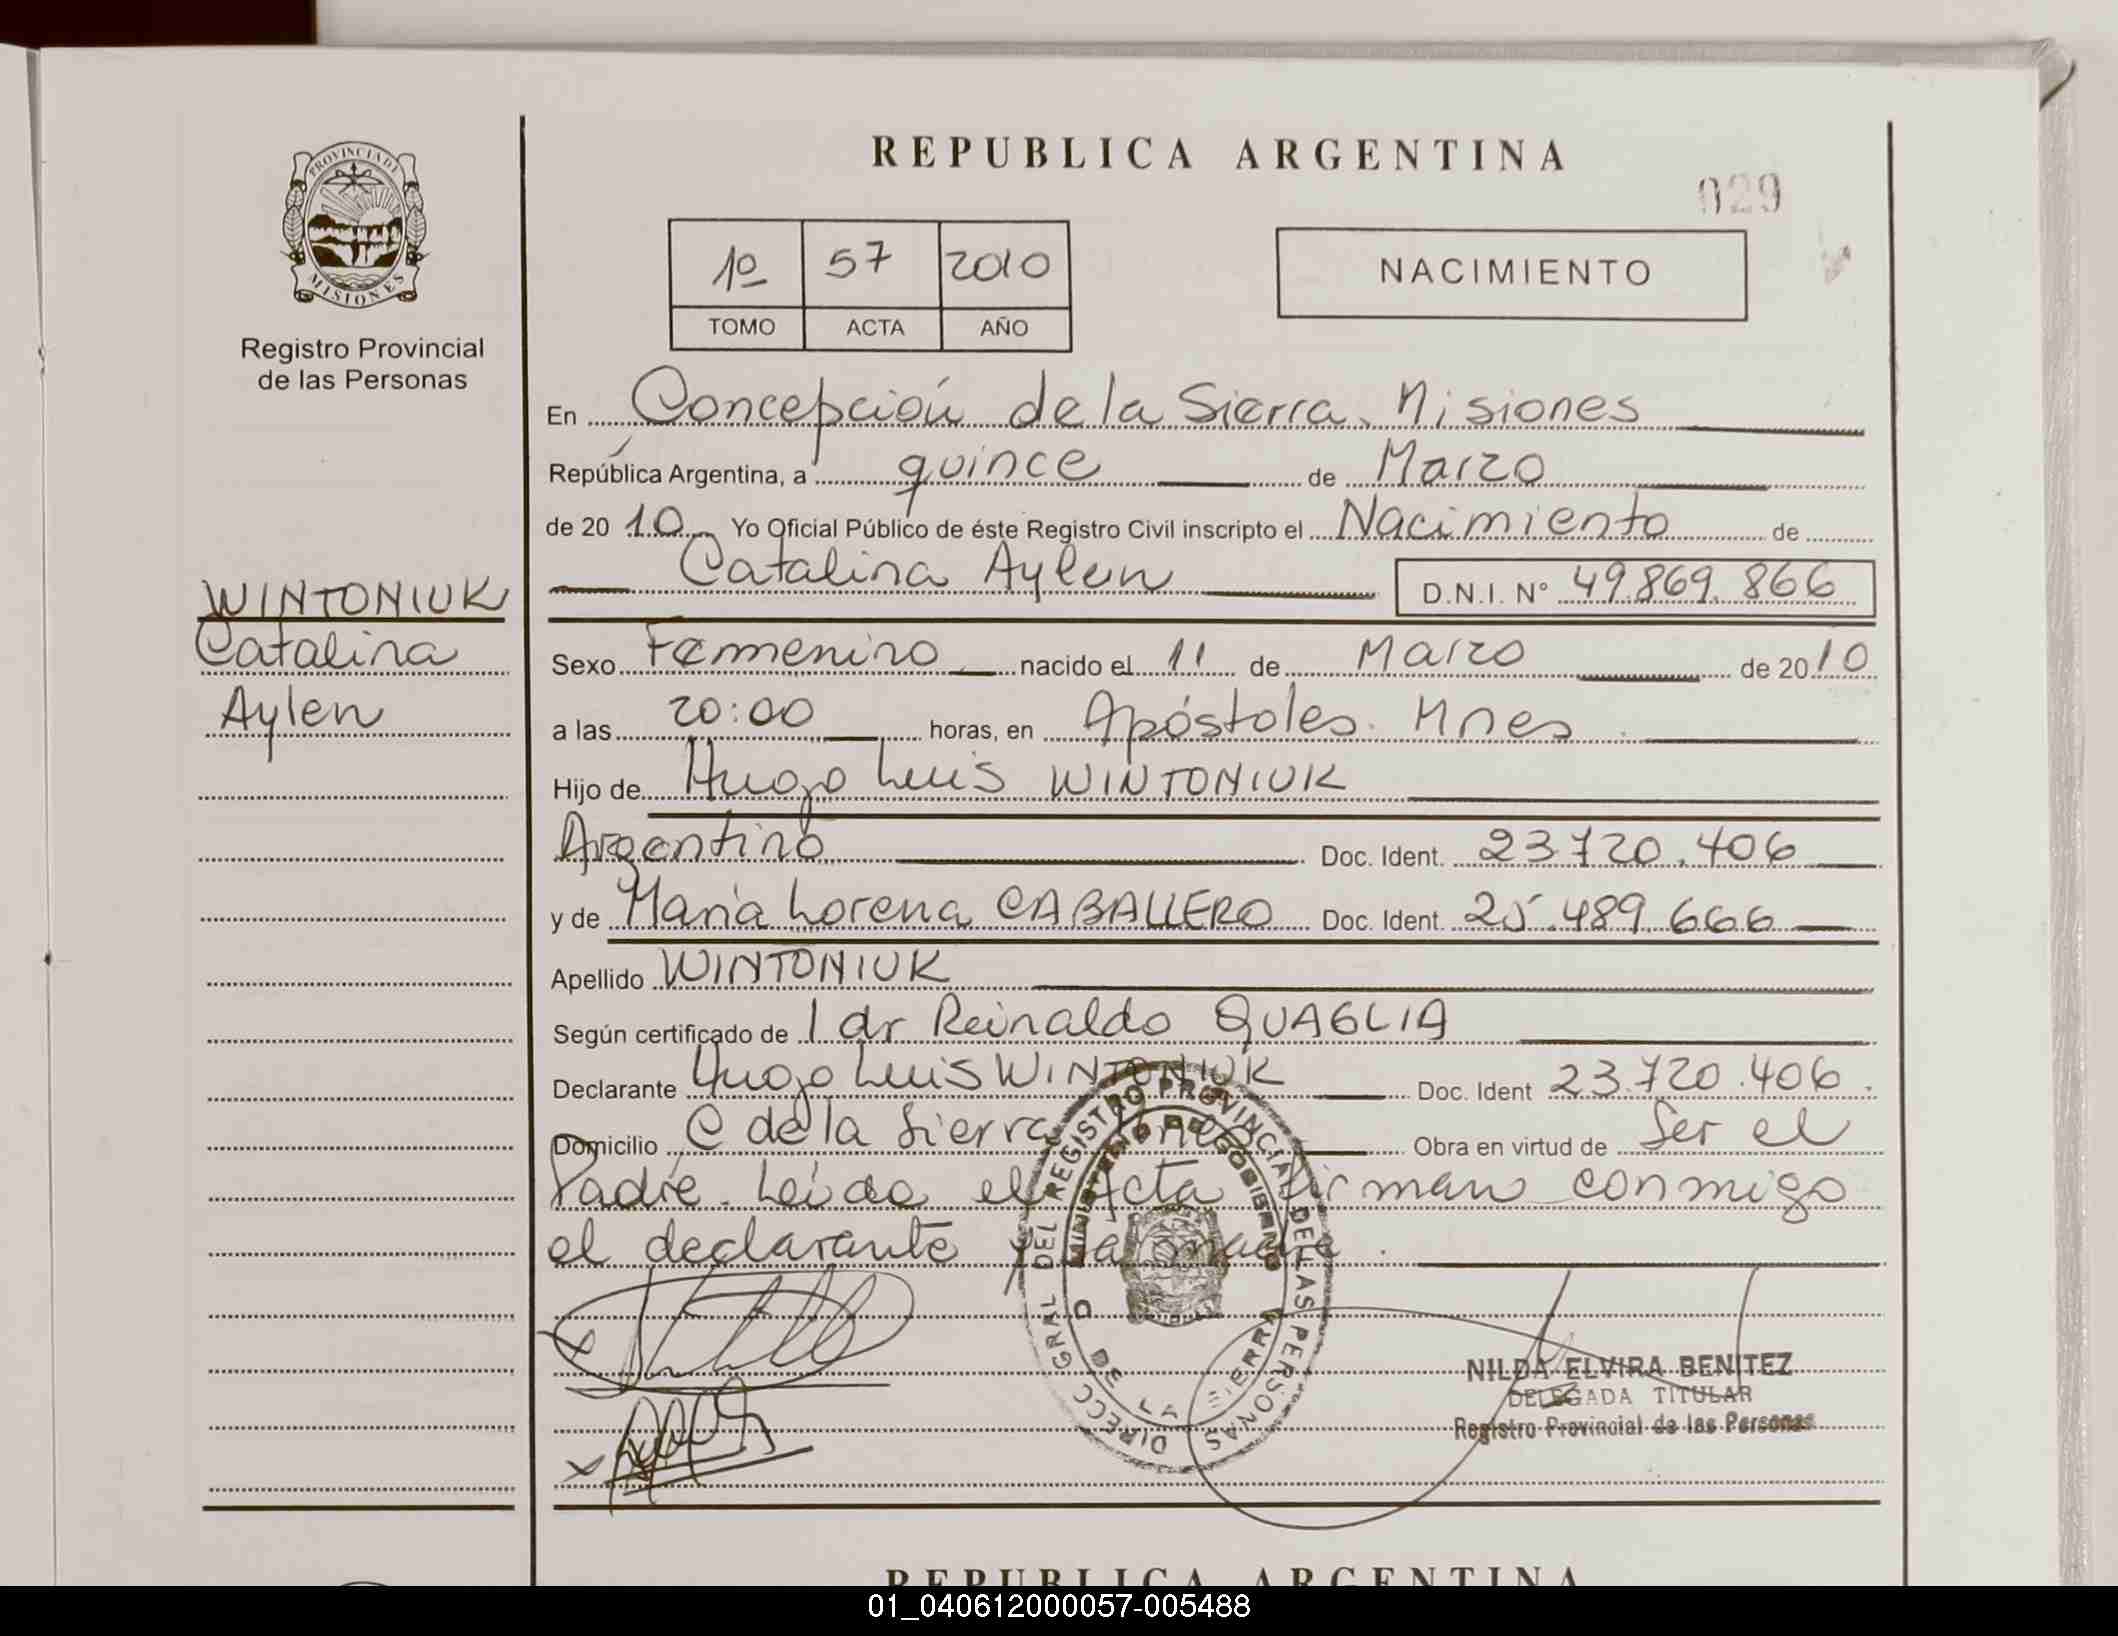 PROVINCIA DE
MISIONES
Registro Provincial
de las Personas
WINTONIUK
Catalina
Aylen
REPUBLICA ARGENTINA
029
1º 57 2010
TOMO ACTA AÑO
NACIMIENTO
En Concepción de la Sierra, Misiones
República Argentina, a quince de Marzo
de 2010 Yo Oficial Público de éste Registro Civil inscripto el Nacimiento de
Catalina Aylen D.N.I. Nº 49.869.866
Sexo Femenino nacido el 11 de Marzo de 2010
a las 20:00 horas, en Apóstoles. Mnes
Hijo de Hugo Luis WINTONIUK
Argentino Doc. Ident. 23.720.406
y de María Lorena CABALLERO Doc. Ident. 25.489.666
Apellido WINTONIUK
Según certificado de 1 dr Reinaldo QUAGLIA
Declarante Hugo Luis WINTONIUK Doc. Ident 23.720.406.
Domicilio C de la Sierra Mnes Obra en virtud de Ser el
Padre. Leída el Acta firman conmigo
el declarante y la madre.
DIRECC GRAL DEL REGISTRO PROVINCIAL DE LAS PERSONAS
MINISTERIO DE GOBIERNO
DE LA SIERRA
NILDA ELVIRA BENITEZ
DELEGADA TITULAR
Registro Provincial de las Personas
REPUBLICA ARGENTINA
01_040612000057-005488